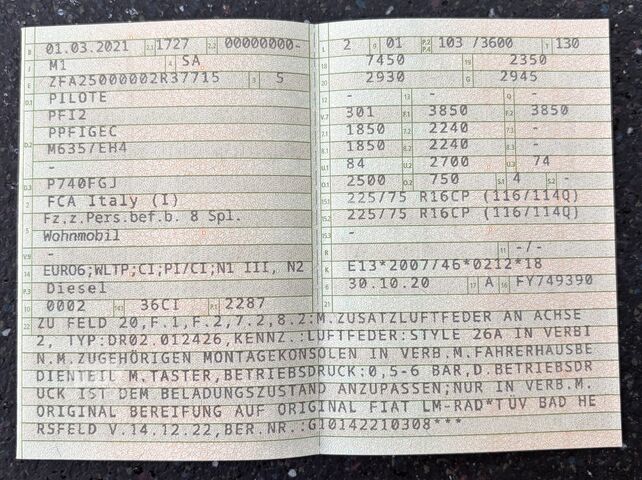 B 01.03.2021 2.1 1727 2.2 00000000-
J M1 4 SA
E ZFA25000002R37715 3 5
D.1 PILOTE
PFI2
D.2 PPFIGEC
M6357EH4
-
D.3 P740FGJ
2 FCA Italy (I)
5 Fz.z.Pers.bef.b. 8 Spl.
Wohnmobil
V.9 -
14 EURO6;WLTP;CI;PI/CI;N1 III, N2
P.3 Diesel
10 0002 14.1 36CI P.1 2287
L 2 9 01 P.2 P.4 103 /3600 T 130
18 7450 19 2350
20 2930 G 2945
12 - 13 - Q -
V.7 301 F.1 3850 F.2 3850
7.1 1850 7.2 2240 7.3 -
8.1 1850 8.2 2240 8.3 -
U.1 84 U.2 2700 U.3 74
O.1 2500 O.2 750 S.1 4 S.2 -
15.1 225/75 R16CP (116/114Q)
15.2 225/75 R16CP (116/114Q)
15.3 -
R 11 -/-
K E13*2007/46*0212*18
6 30.10.20 17 A 16 FY749390
21
22 ZU FELD 20,F.1,F.2,7.2,8.2:M.ZUSATZLUFTFEDER AN ACHSE
2, TYP:DR02.012426,KENNZ.:LUFTFEDER:STYLE 26A IN VERBI
N.M.ZUGEHÖRIGEN MONTAGEKONSOLEN IN VERB.M.FAHRERHAUSBE
DIENTEIL M.TASTER,BETRIEBSDRUCK:0,5-6 BAR,D.BETRIEBSDR
UCK IST DEM BELADUNGSZUSTAND ANZUPASSEN;NUR IN VERB.M.
ORIGINAL BEREIFUNG AUF ORIGINAL FIAT LM-RAD*TÜV BAD HE
RSFELD V.14.12.22,BER.NR.:G10142210308***